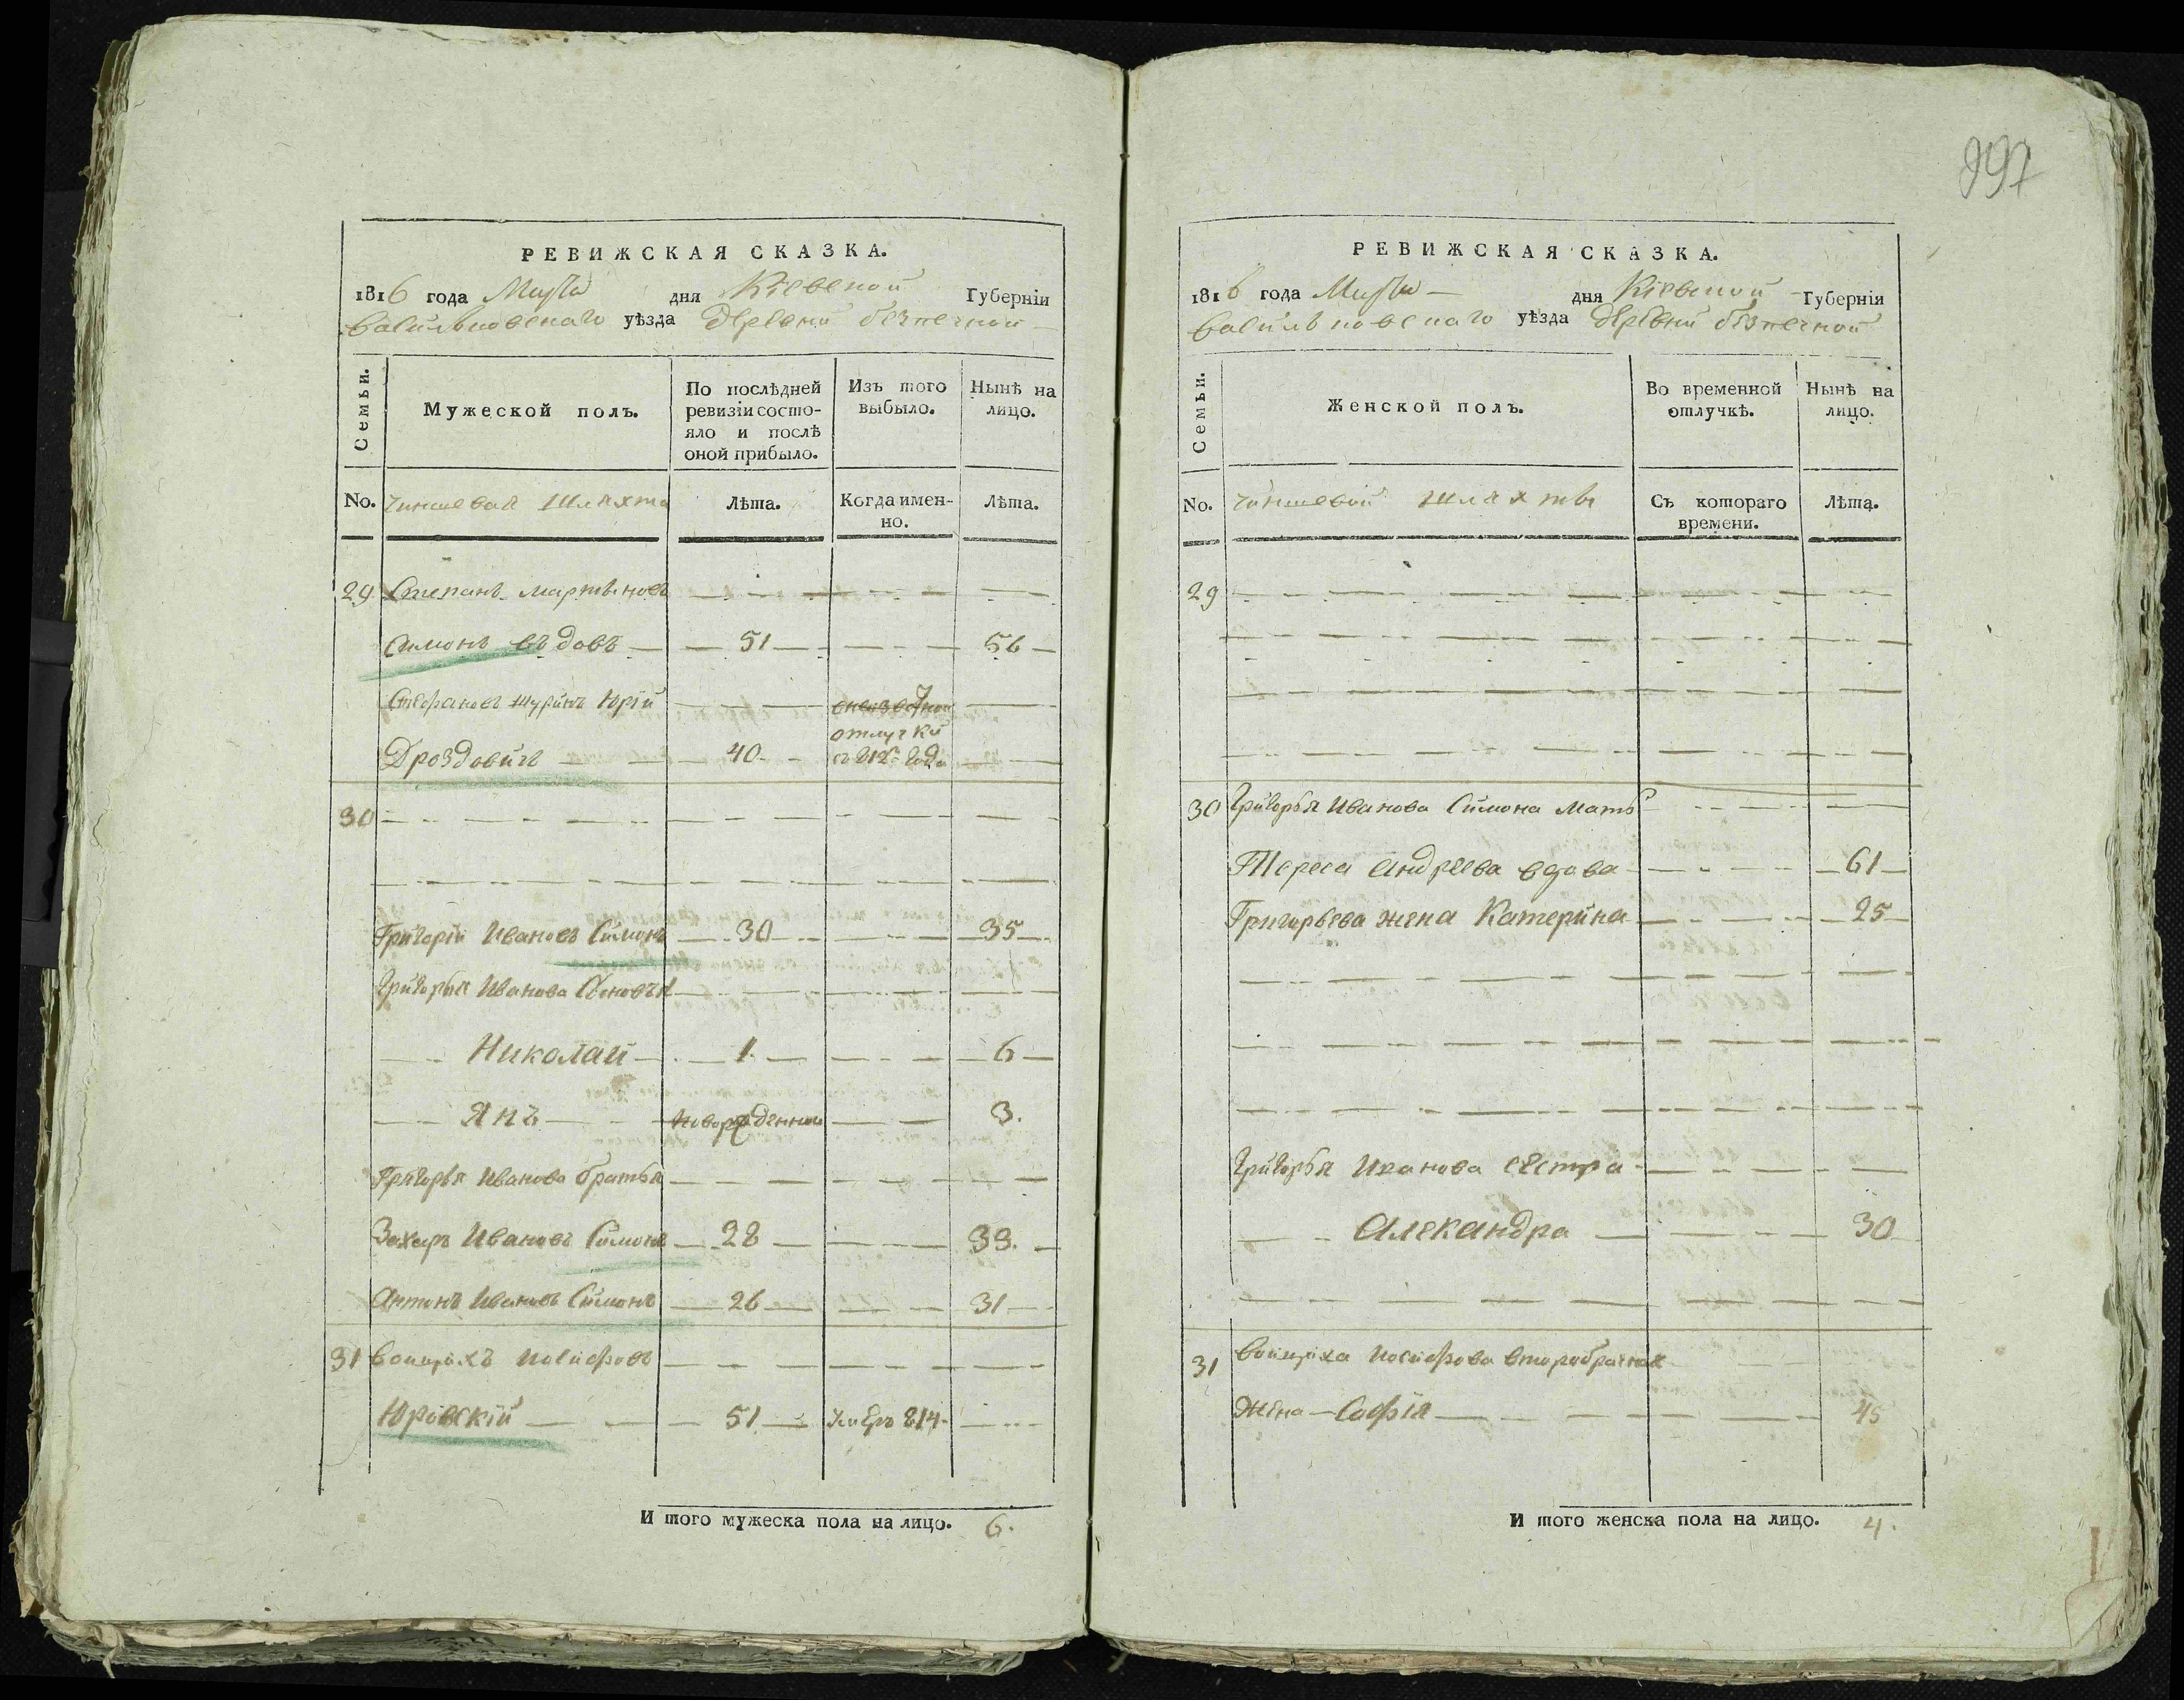 997
РЕВИЖСКАЯ СКАЗКА.
1816 года Марта дня Кіевской Губерніи
Васильковскаго уѣзда деревни безпечной
Семьи.
Мужеской полъ.
По послѣдней ревизіи состояло и послѣ оной прибыло.
Изъ того выбыло.
Нынѣ на лицо.
No. Чиншевая Шляхта
Лѣта.
Когда именно.
Лѣта.
29 Степанъ Мартыновъ
Симонъ вдовъ 51 56
Стефановъ шуринъ Юрій
Дроздовичъ 40 отлучки съ 812 года
30
Григорій Ивановъ Симонъ 30 35
Григорья Иванова сыновья
Николай 1 6
Янъ новорожденный 3.
Григорья Иванова братья
Захаръ Ивановъ Симонъ 28 33.
Антонъ Ивановъ Симонъ 26 31
31 Войцѣхъ Іосифовъ
Юровскій 51 Умеръ 814.
И того мужеска пола на лицо. 6.
РЕВИЖСКАЯ СКАЗКА.
1816 года Марта дня Кіевской Губернія
Васильковскаго уѣзда деревни безпечной
Семьи.
Женской полъ.
Во временной отлучкѣ.
Нынѣ на лицо.
No. Чиншевой шляхты
Съ котораго времени.
Лѣта.
29
30 Григорья Иванова Симона мать
Тереса Андреева вдова 61
Григорьева жена Катерина 25
Григорья Иванова сестра
Алекандра 30
31 Войцѣха Іосифова второбрачная
Жена Софія 45
И того женска пола на лицо. 4.